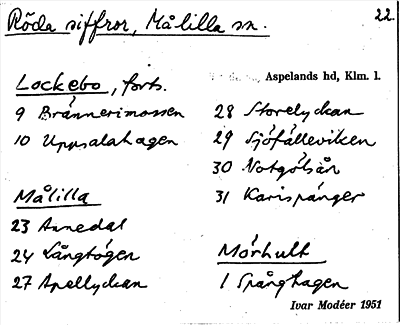 Röda siffror, Målilla sn.
22.
Lockebo, forts.
9 Brännerimossen
10 Uppsalahagen
Målilla
23 Annedal
24 Långtógen
27 Apellyckan
Aspelands hd, Klm. l.
28 Storelyckan
29 Sjöfälleviken
30 Notgölsån
31 Karispánger
Mörhult
1 Spånghagen
Ivar Modéer 1951